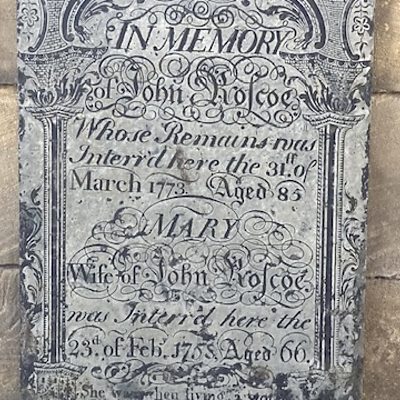 IN MEMORY
of John Roscoe
Whose Remains was
Interr'd here the 31st. of
March 1773. Aged 85
MARY
Wife of John Roscoe
was Interr'd here the
23d. of Feb. 1755. Aged 66.
She was when living, a